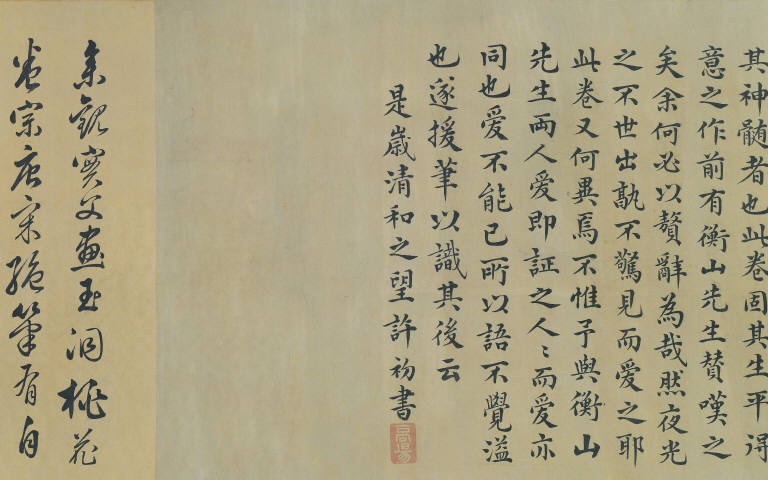 其神髓者也此卷固其生平得
意之作前有衡山先生贊嘆之
矣余何必以贅辭為哉然夜光
之不世出孰不驚見而愛之耶
此卷又何異焉不惟予與衡山
先生兩人愛即証之人〻而愛亦
同也愛不能已所以語不覺溢
也遂援筆以識其後云
是歲清和之望許初書
高陽
余觀實父畫玉洞桃花
卷宗唐宋絕筆有自